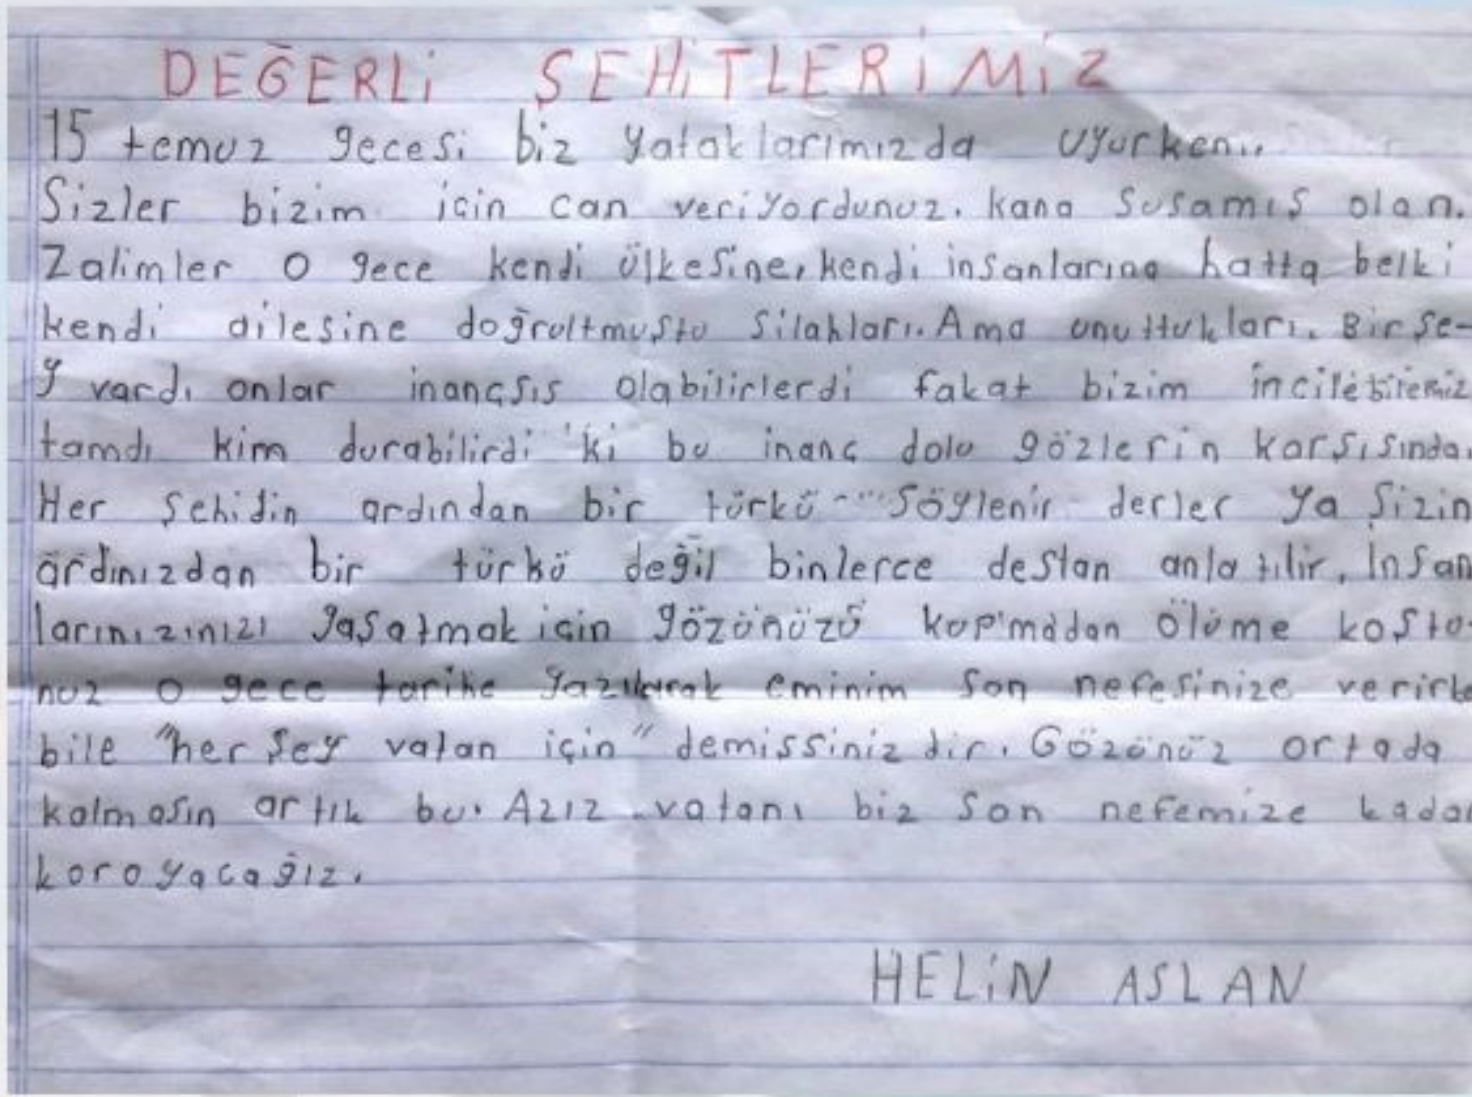 DEĞERLİ ŞEHİTLERİMİZ
15 temuz gecesi biz yataklarımızda uyurken..
Sizler bizim için can veriyordunuz. kana susamıs olan.
Zalimler o gece kendi ülkesine, kendi insanlarına hatta belki
kendi ailesine doğrultmuştu silahları. Ama unuttukları. Bir şe-
y vardı onlar inançsıs olabilirlerdi fakat bizim
tamdı kim durabilirdi ki bu inanç dolu gözlerin karşısında.
Her şehidin ardından bir türkü söylenir derler ya sizin
ardınızdan bir türkü değil binlerce destan anlatılir. İnsan
larınızınızı yaşatmak için gözünüzü kıp'madan ölüme koştu-
nuz o gece tarihe eminim son nefesinize
bile "her şey vatan için" demissinizdir. Gözünüz ortada
kalmasın artık bu. Azız vatanı biz son nefemize kadar
koroyacağız.
HELİN ASLAN